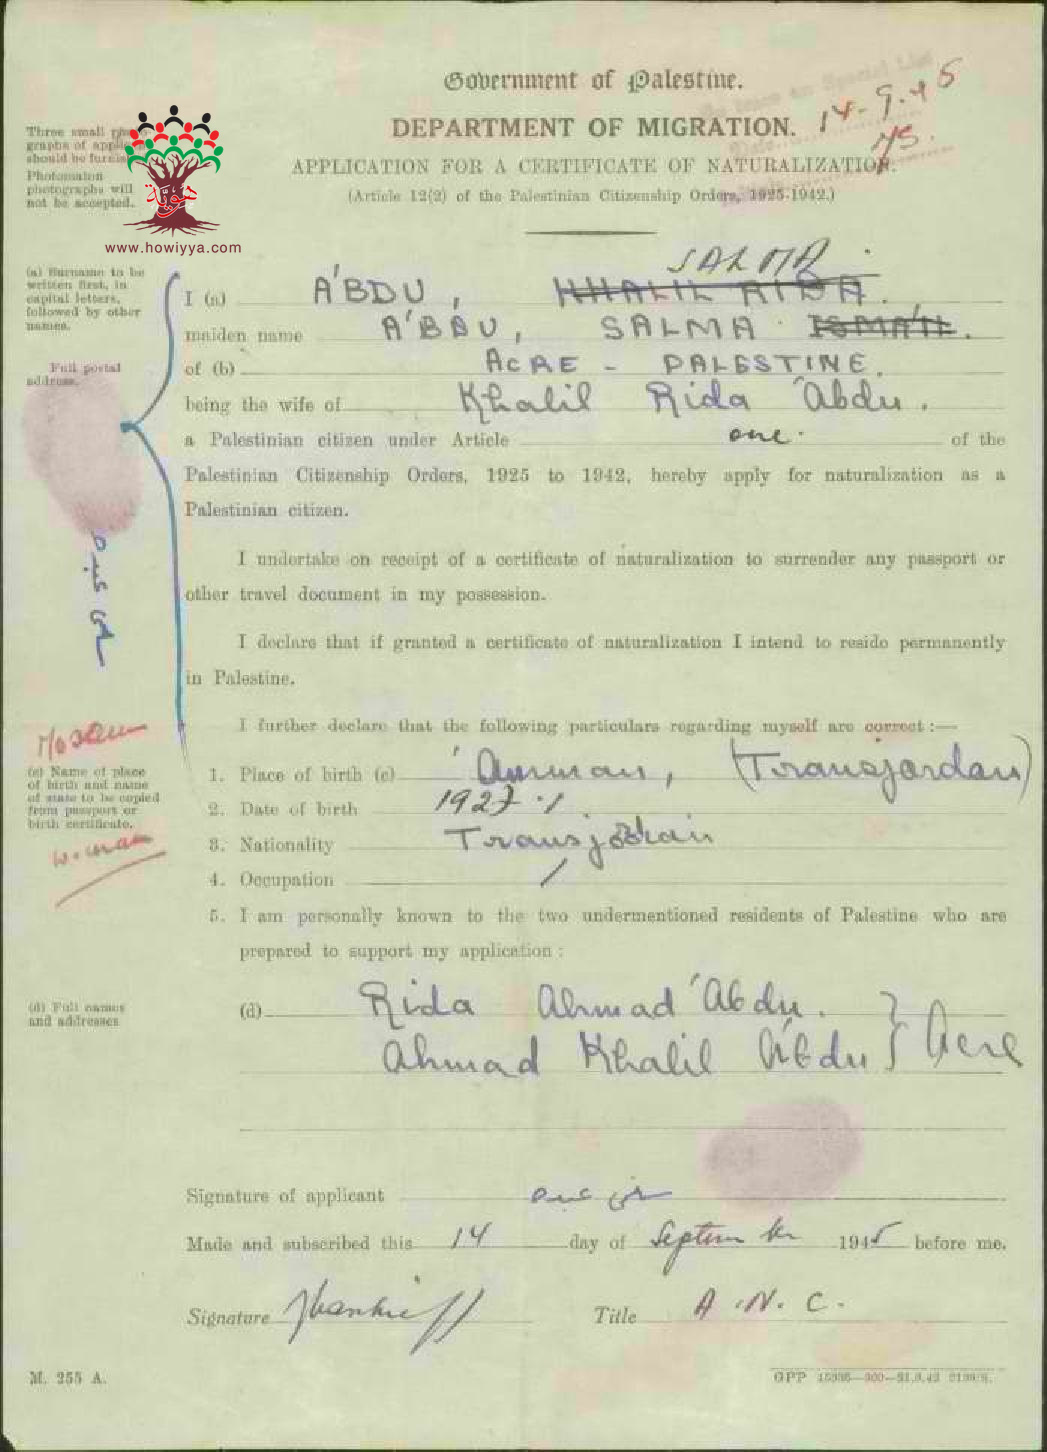 Government of Palestine.
DEPARTMENT OF MIGRATION.
14-9-45
APPLICATION FOR A CERTIFICATE OF NATURALIZATION.
(Article 12(2) of the Palestinian Citizenship Orders, 1925-1942.)
Three small photographs of applicant should be furnished
Photomaton photographs will not be accepted.
هوية
www.howiyya.com
(a) Surname to be written first, in capital letters, followed by other names.
SALMA
I (a) A'BDU, KHALIL RIDA.
maiden name A'BDU, SALMA ISMA'IL.
Full postal address.
of (b) ACRE - PALESTINE.
being the wife of Khalil Rida 'Abdu.
a Palestinian citizen under Article one. of the
Palestinian Citizenship Orders, 1925 to 1942, hereby apply for naturalization as a
Palestinian citizen.
I undertake on receipt of a certificate of naturalization to surrender any passport or
other travel document in my possession.
I declare that if granted a certificate of naturalization I intend to reside permanently
in Palestine.
I further declare that the following particulars regarding myself are correct :—
Moslem
(c) Name of place of birth and name of state to be copied from passport or birth certificate.
woman
1. Place of birth (c) 'Amman, (Transjordan)
2. Date of birth 1927
3. Nationality Transjordan
4. Occupation /
5. I am personally known to the two undermentioned residents of Palestine who are
prepared to support my application :
(d) Full names and addresses
(d) Rida Ahmad 'Abdu.
Ahmad Khalil A'bdu } Acre
Signature of applicant
Made and subscribed this 14 day of September 1945 before me.
Signature Title A.N.C.
M. 255 A.
GPP